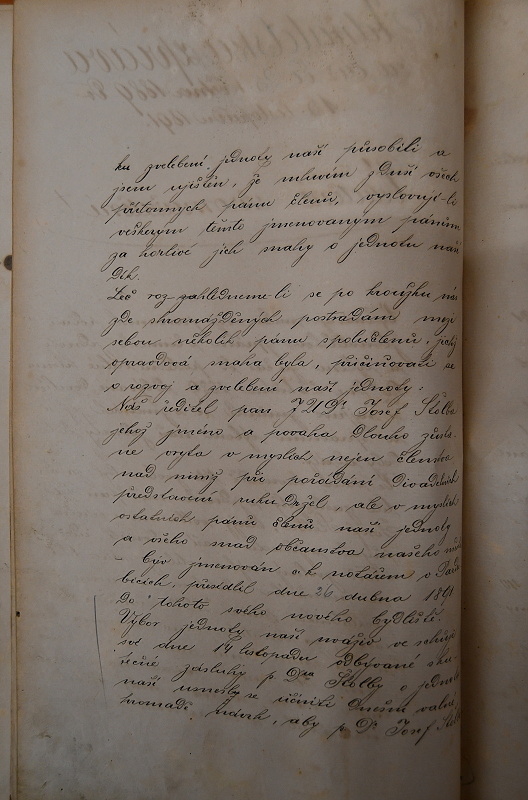 ku zvelebení jednoty naší působili a
jsem ujištěn, že mluvím z duší všech
přítomných pánů členů, vyslovuji-li
veškerým těmto jmenovaným pánům
za horlivé jich snahy o jednotu naši
dík.
Leč roz-zahlédneme-li se po kroužku nás
zde shromážděných postrádám mezi
sebou několik pánů spolučlenů, jichž
opravdová snaha byla, přičiňovati se
o rozvoj a zvelebení naší jednoty:
Náš ředitel pan JUDr Josef Štolba
jehož jméno a povaha dlouho zůsta-
ne vryta v myslích nejen členstva
nad nimž při pořádání divadelních
představení ruku držel, ale v myslích
ostatních pánů členů naší jednoty
a všeho snad občanstva našeho
– byv jmenován c. k. notářem v Pardu-
bicích, přesídlil dne 26 dubna 1891
do tohoto svého nového bydliště.
Výbor jednoty naší uváživ ve schůzi
své dne 14 listopadu odbývané sku-
tečné zásluhy p. Dra Štolby o jednotu
naši usnesl se učiniti dnešní valné
hromadě návrh, aby p. Dr. Josef Štolba